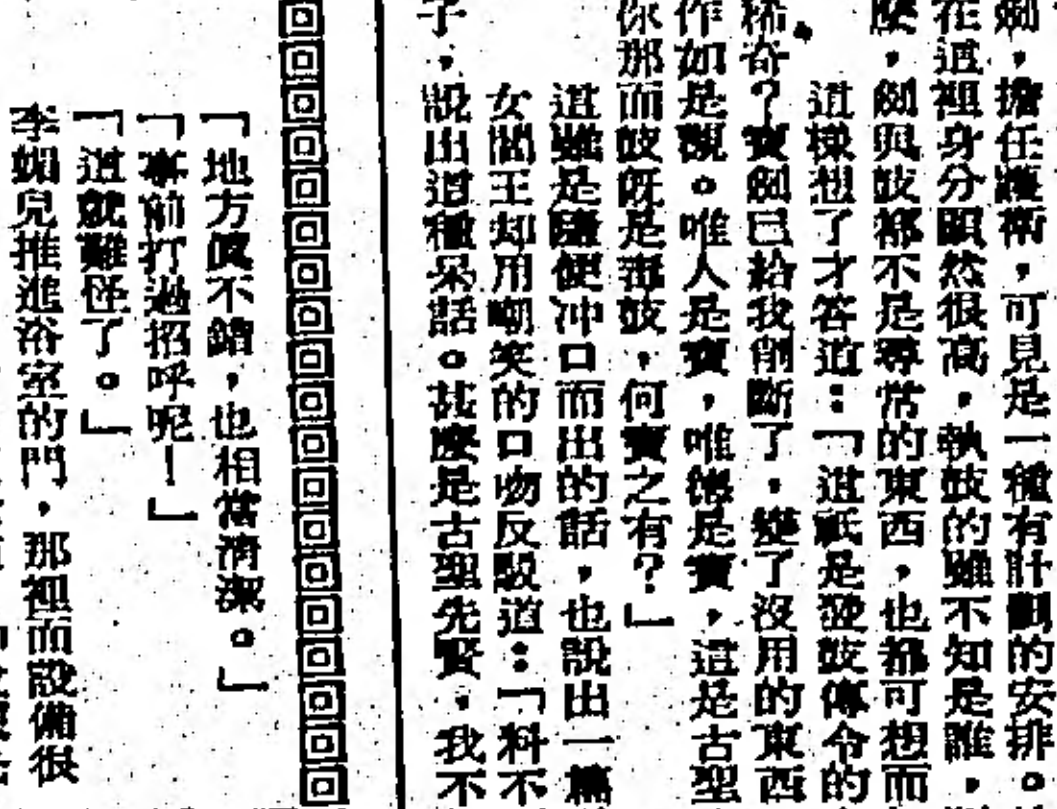 劍，擔任護衛，可見是一種有計劃的安排。
在這裡身分顯然很高，執鼓的雖不知是誰，
麼，劍與鼓都不是尋常的東西，也都可想而
這樣想了才答道：「這祇是發鼓傳令的
稀奇？寶劍已給我削斷了，變了沒用的東西
作如是觀。唯人是寶，唯德是寶，這是古聖
你那面鼓既是毒鼓，何寶之有？」
這雖是隨便冲口而出的話，也說出一篇
女閻王却用嘲笑的口吻反駁道：「料不
子，說出這種呆話。甚麼是古聖先賢，我不
「地方眞不錯，也相當清潔。」
「事前打過招呼呢！」
「這就難怪了。」
李媚兒推進浴室的門，那裡面設備很